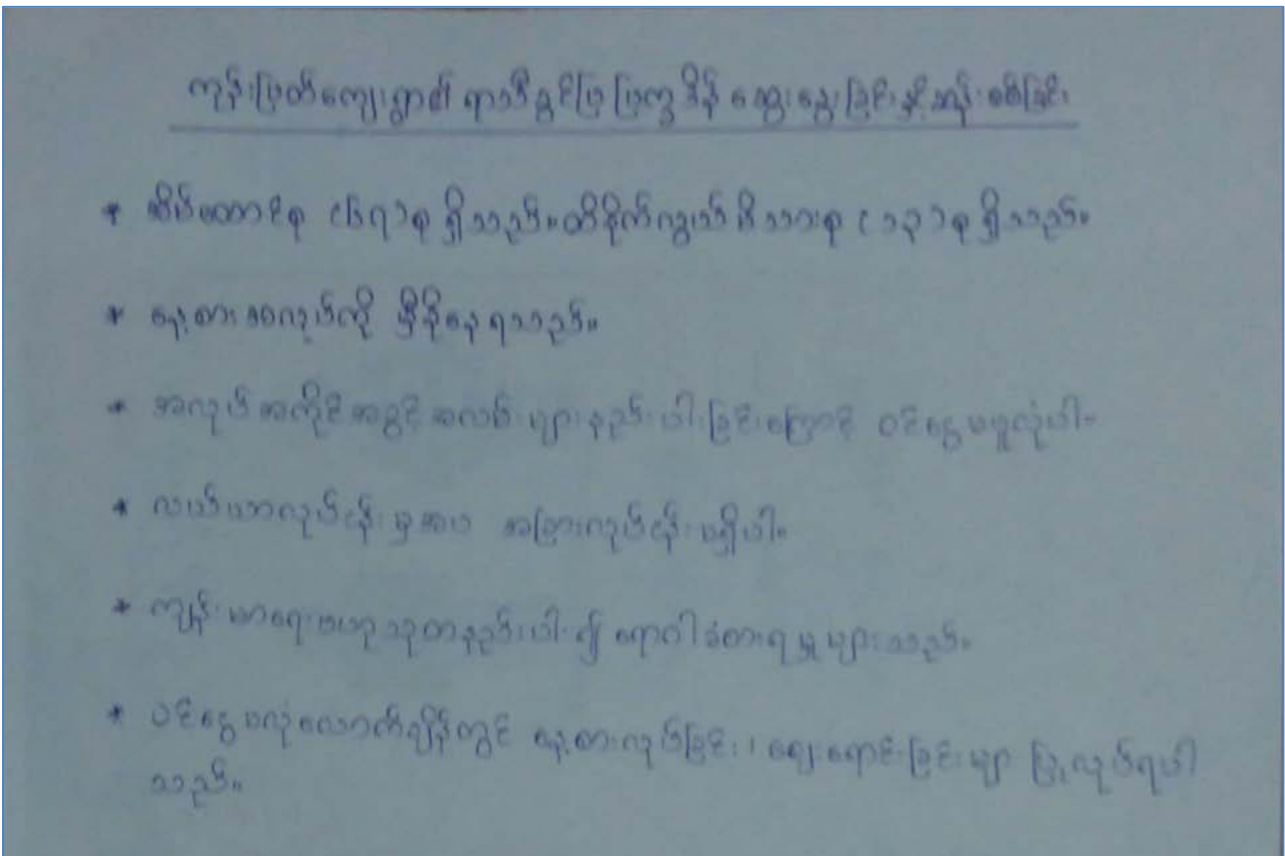 ကုန်းဖြတ်ကျေးရွာ၏ ရာသီခွင်ပြ ပြက္ခဒိန် ဆွေးနွေးခြင်းနှင့်ဆန်းစစ်ခြင်း
* အိမ်ထောင်စု (၆၇)စု ရှိသည်။ တိုက်ရိုက် မိသားစု ( ၁၃ )စု ရှိသည်။
* နေ့စားအလုပ်ကို မှီခိုနေရသည်။
* အလုပ်အကိုင်အခွင့်အလမ်းများနည်းပါးခြင်းကြောင့် ဝင်ငွေမဖူလုံပါ။
* လယ်ယာလုပ်ငန်းမှအပ အခြားလုပ်ငန်းမရှိပါ။
* ကျန်းမာရေးဗဟုသုတနည်းပါး၍ ရောဂါခံစားရမှုများသည်။
* ဝင်ငွေမလုံလောက်ချိန်တွင် နေ့စားလုပ်ခြင်း၊ ချေးရောင်းခြင်းများ ပြုလုပ်ရပါ
သည်။